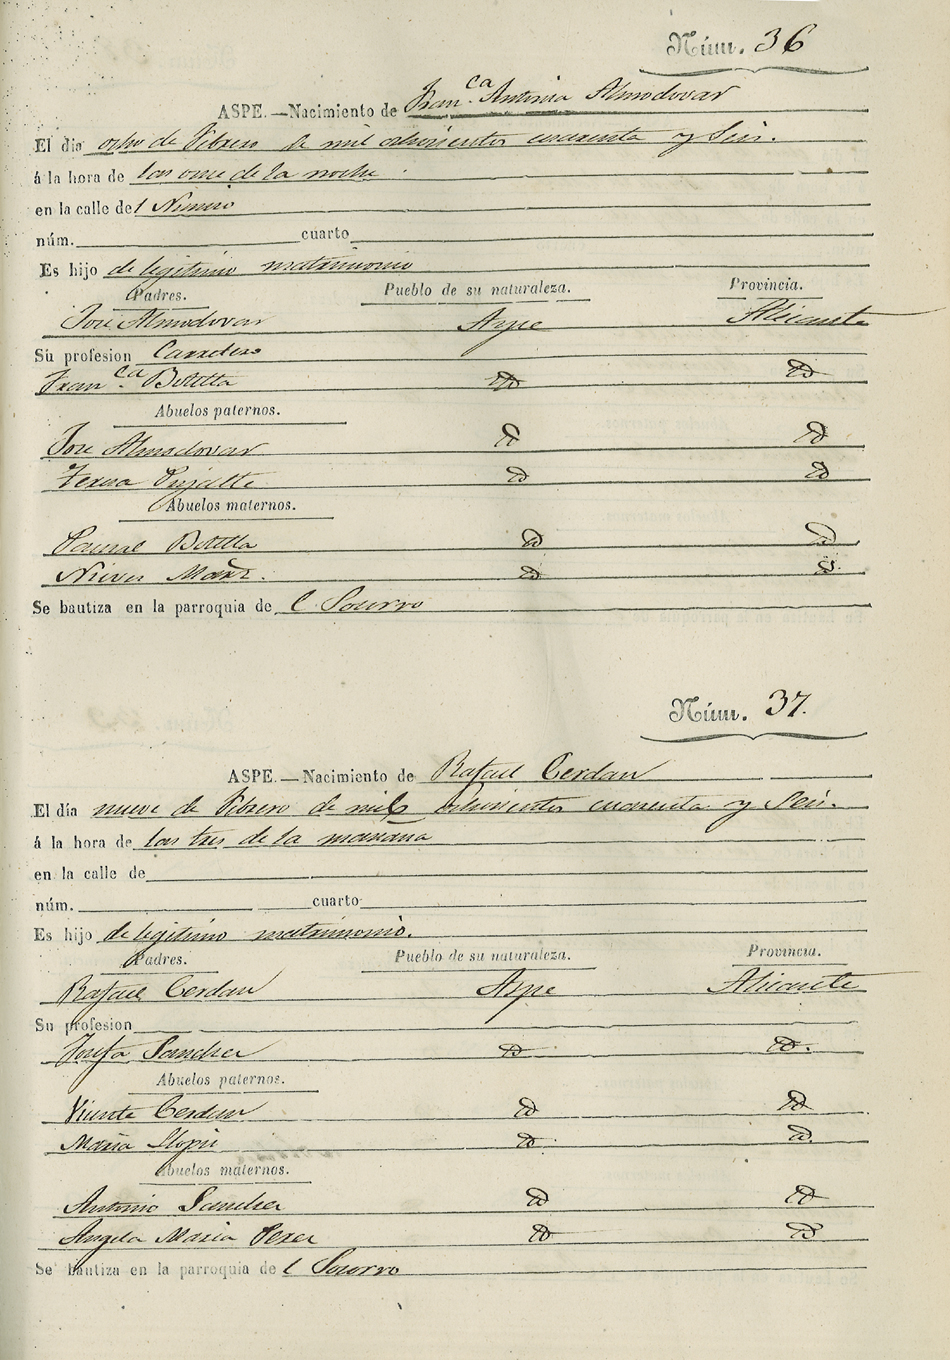 Núm. 36
ASPE.—Nacimiento de Fran.ca Antonia Almodovar
El día ocho de Febrero de mil ochocientos cuarenta y Seis.
á la hora de las once de la noche
en la calle de l
núm. cuarto
Es hijo de legitimo matrimonio
Padres. Pueblo de su naturaleza. Provincia.
Jose Almodovar Aspe Alicante
Su profesion Carretero
Fran.ca Botella Id Id
Abuelos paternos.
Jose Almodovar Id Id
Teresa Pujalte Id Id
Abuelos maternos.
Pascual Botella Id Id
Nieves Mart.z Id Id
Se bautiza en la parroquia de l Socorro
Núm. 37.
ASPE.—Nacimiento de Rafael Cerdan
El día nueve de Febrero de mil ochocientos cuarenta y Seis.
á la hora de las tres de la mañana
en la calle de
núm. cuarto
Es hijo de legitimo matrimonio.
Padres. Pueblo de su naturaleza. Provincia.
Rafael Cerdan Aspe Alicante
Su profesion
Josefa Sanchez Id Id.
Abuelos paternos.
Vicente Cerdan Id Id
Maria Llopis Id Id
Abuelos maternos.
Antonio Sanchez Id Id
Angela Maria Perez Id Id
Se bautiza en la parroquia de l Socorro